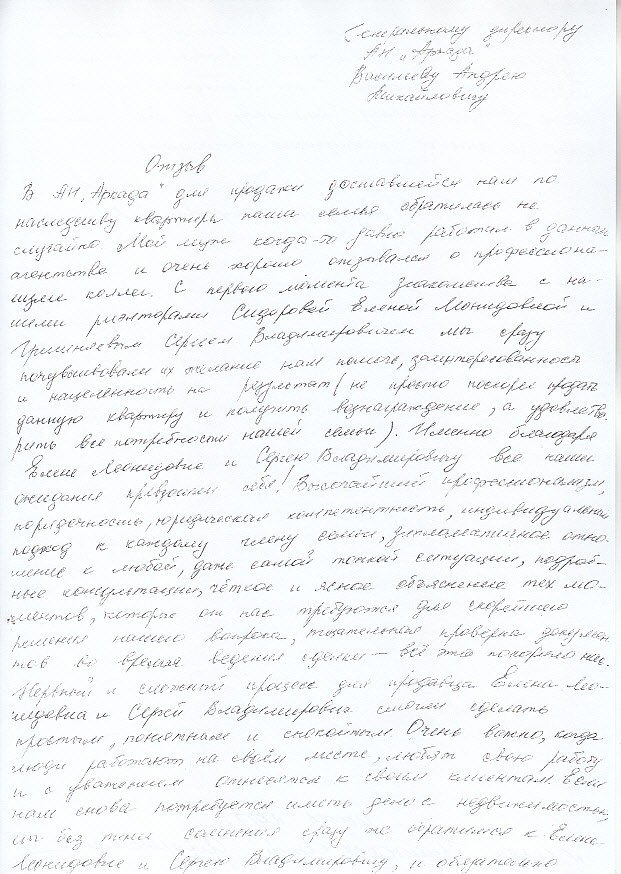 Генеральному директору
АН „Аркада"
Васильеву Андрею
Михайловичу
Отзыв
В АН „Аркада" для продажи доставшейся нам по
наследству квартиры наша семья обратилась не
случайно. Мой муж когда-то давно работал в данном
агентстве и очень хорошо отзывался о профессиона-
лизме коллег. С первого момента знакомства с на-
шими риэлторами Сидоровой Еленой Леонидовной и
Сергеем Владимировичем мы сразу
почувствовали их желание нам помочь, заинтересованность
и нацеленность на результат (не просто поскорее продать
данную квартиру и получить вознаграждение, а удовлетво-
рить все потребности нашей семьи). Именно благодаря
Елене Леонидовне и Сергею Владимировичу все наши
ожидания превзошли себя! Высочайший профессионализм,
порядочность, юридическая компетентность, индивидуальный
подход к каждому члену семьи, дипломатичное отно-
шение к любой, даже самой тонкой ситуации, подроб-
ные консультации, чёткое и ясное объяснение тех мо-
ментов, которые от нас требуются для скорейшего
решения нашего вопроса, тщательная проверка докумен-
тов во время ведения сделки – всё это покорило нас.
Нервный и сложный процесс для продавца Елена Лео-
нидовна и Сергей Владимирович смогли сделать
простым, понятным и спокойным. Очень важно, когда
люди работают на своём месте, любят свою работу
и с уважением относятся к своим клиентам. Если
нам снова потребуется иметь дело с недвижимостью,
мы без тени сомнения сразу же обратимся к Елене
Леонидовне и Сергею Владимировичу, и обязательно